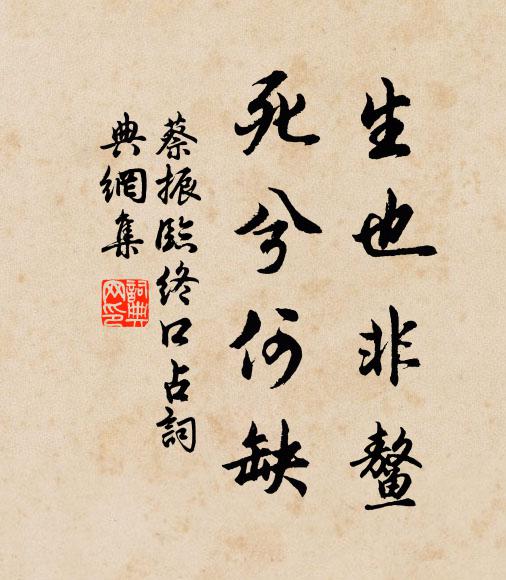 生也非鰲
死兮何缺
蔡振臨終口占詞
典網集
詞典網印